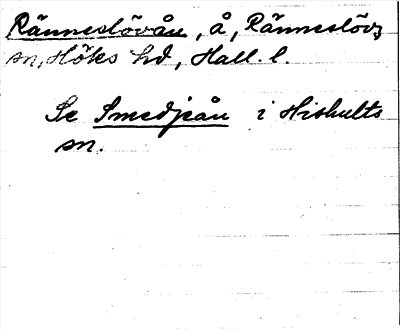 Ränneslövsån, å, Ränneslövs
sn, Höks hd, Hall. l.
Se Smedjeån i Hishults
sn.